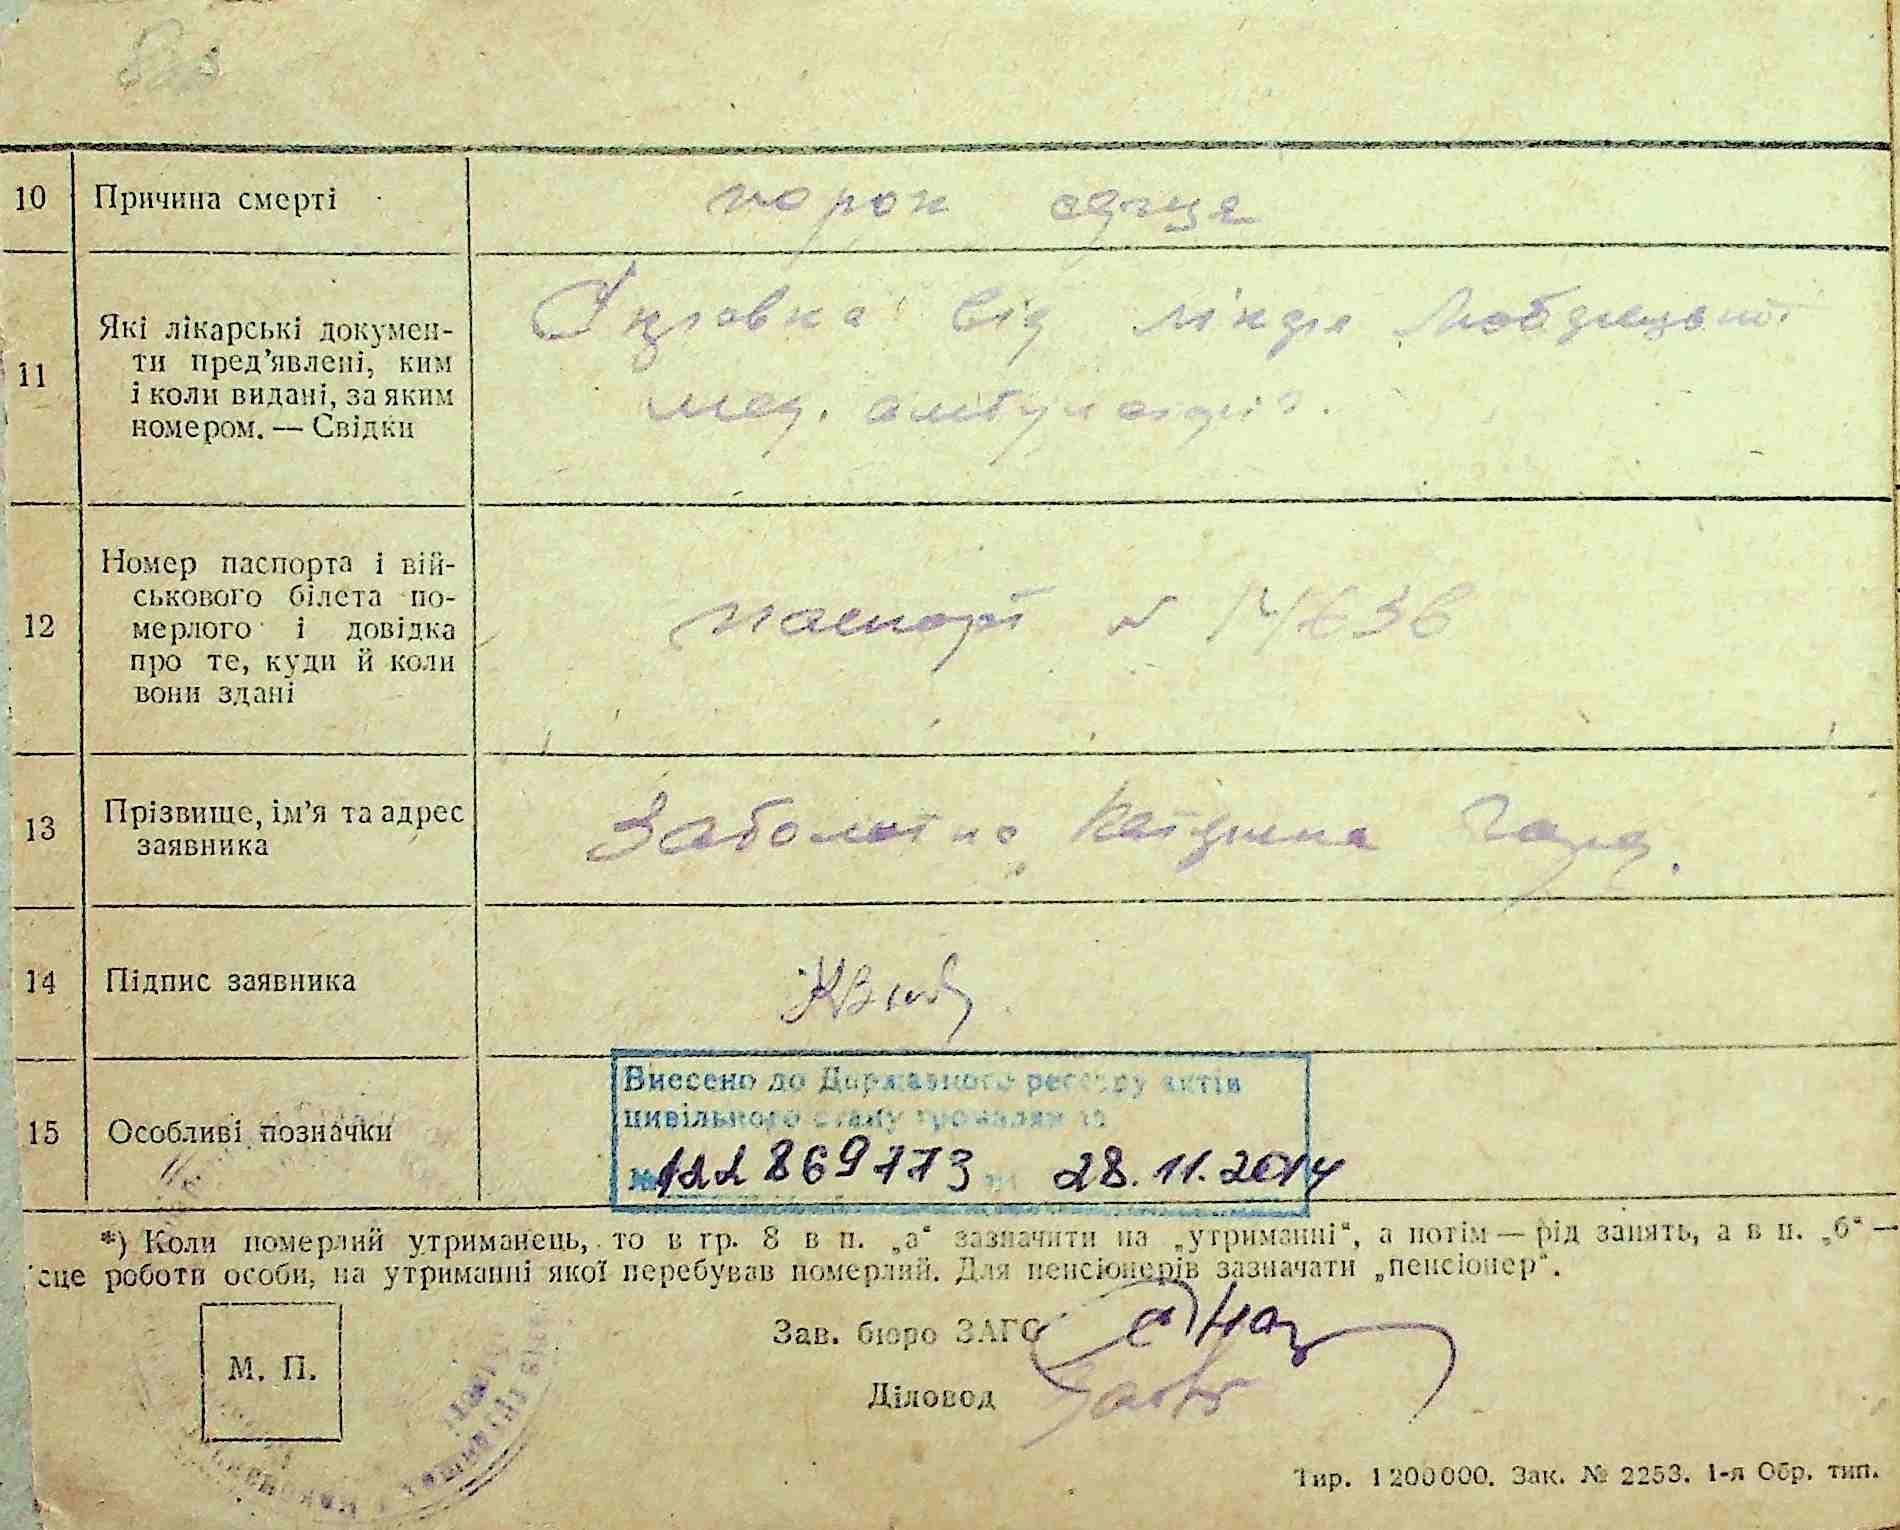 10 Причина смерті порок серця
11 Які лікарські докумен-
ти пред’явлені, ким
і коли видані, за яким
номером. — Свідки
від
мед. амбулаторії.
12 Номер паспорта і вій-
ськового білета по-
мерлого і довідка
про те, куди й коли
вони здані
паспорт №
13 Прізвище, ім’я та адрес
заявника
14 Підпис заявника
15 Особливі позначки
Внесено до Державного реєстру актів
цивільного стану громадян за
№ 122869773 28.11.2014
*) Коли померлий утриманець, то в гр. 8 в п. „а“ зазначити на „утриманні“, а потім — рід занять, а в п. „б“ —
сце роботи особи, на утриманні якої перебував померлий. Для пенсіонерів зазначати „пенсіонер“.
М. П.
Зав. бюро ЗАГС
Діловод
Тир. 1200000. Зак. № 2253. 1-я Обр. тип.